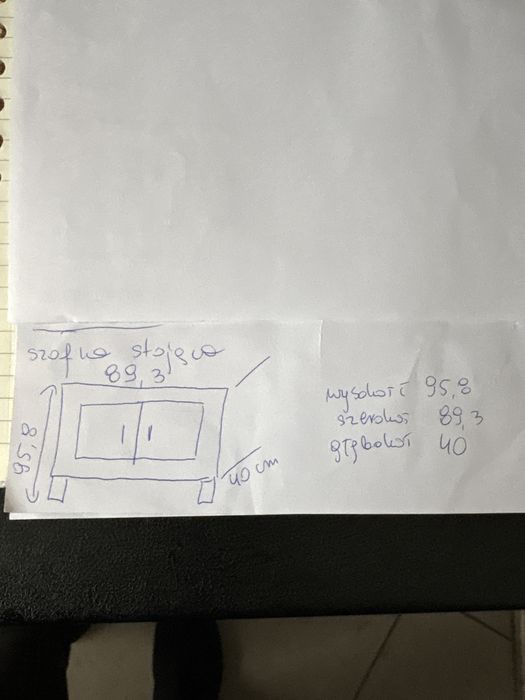 szafka stojąca
89,3
95,8
40 cm
wysokość 95,8
szerokość 89,3
głębokość 40